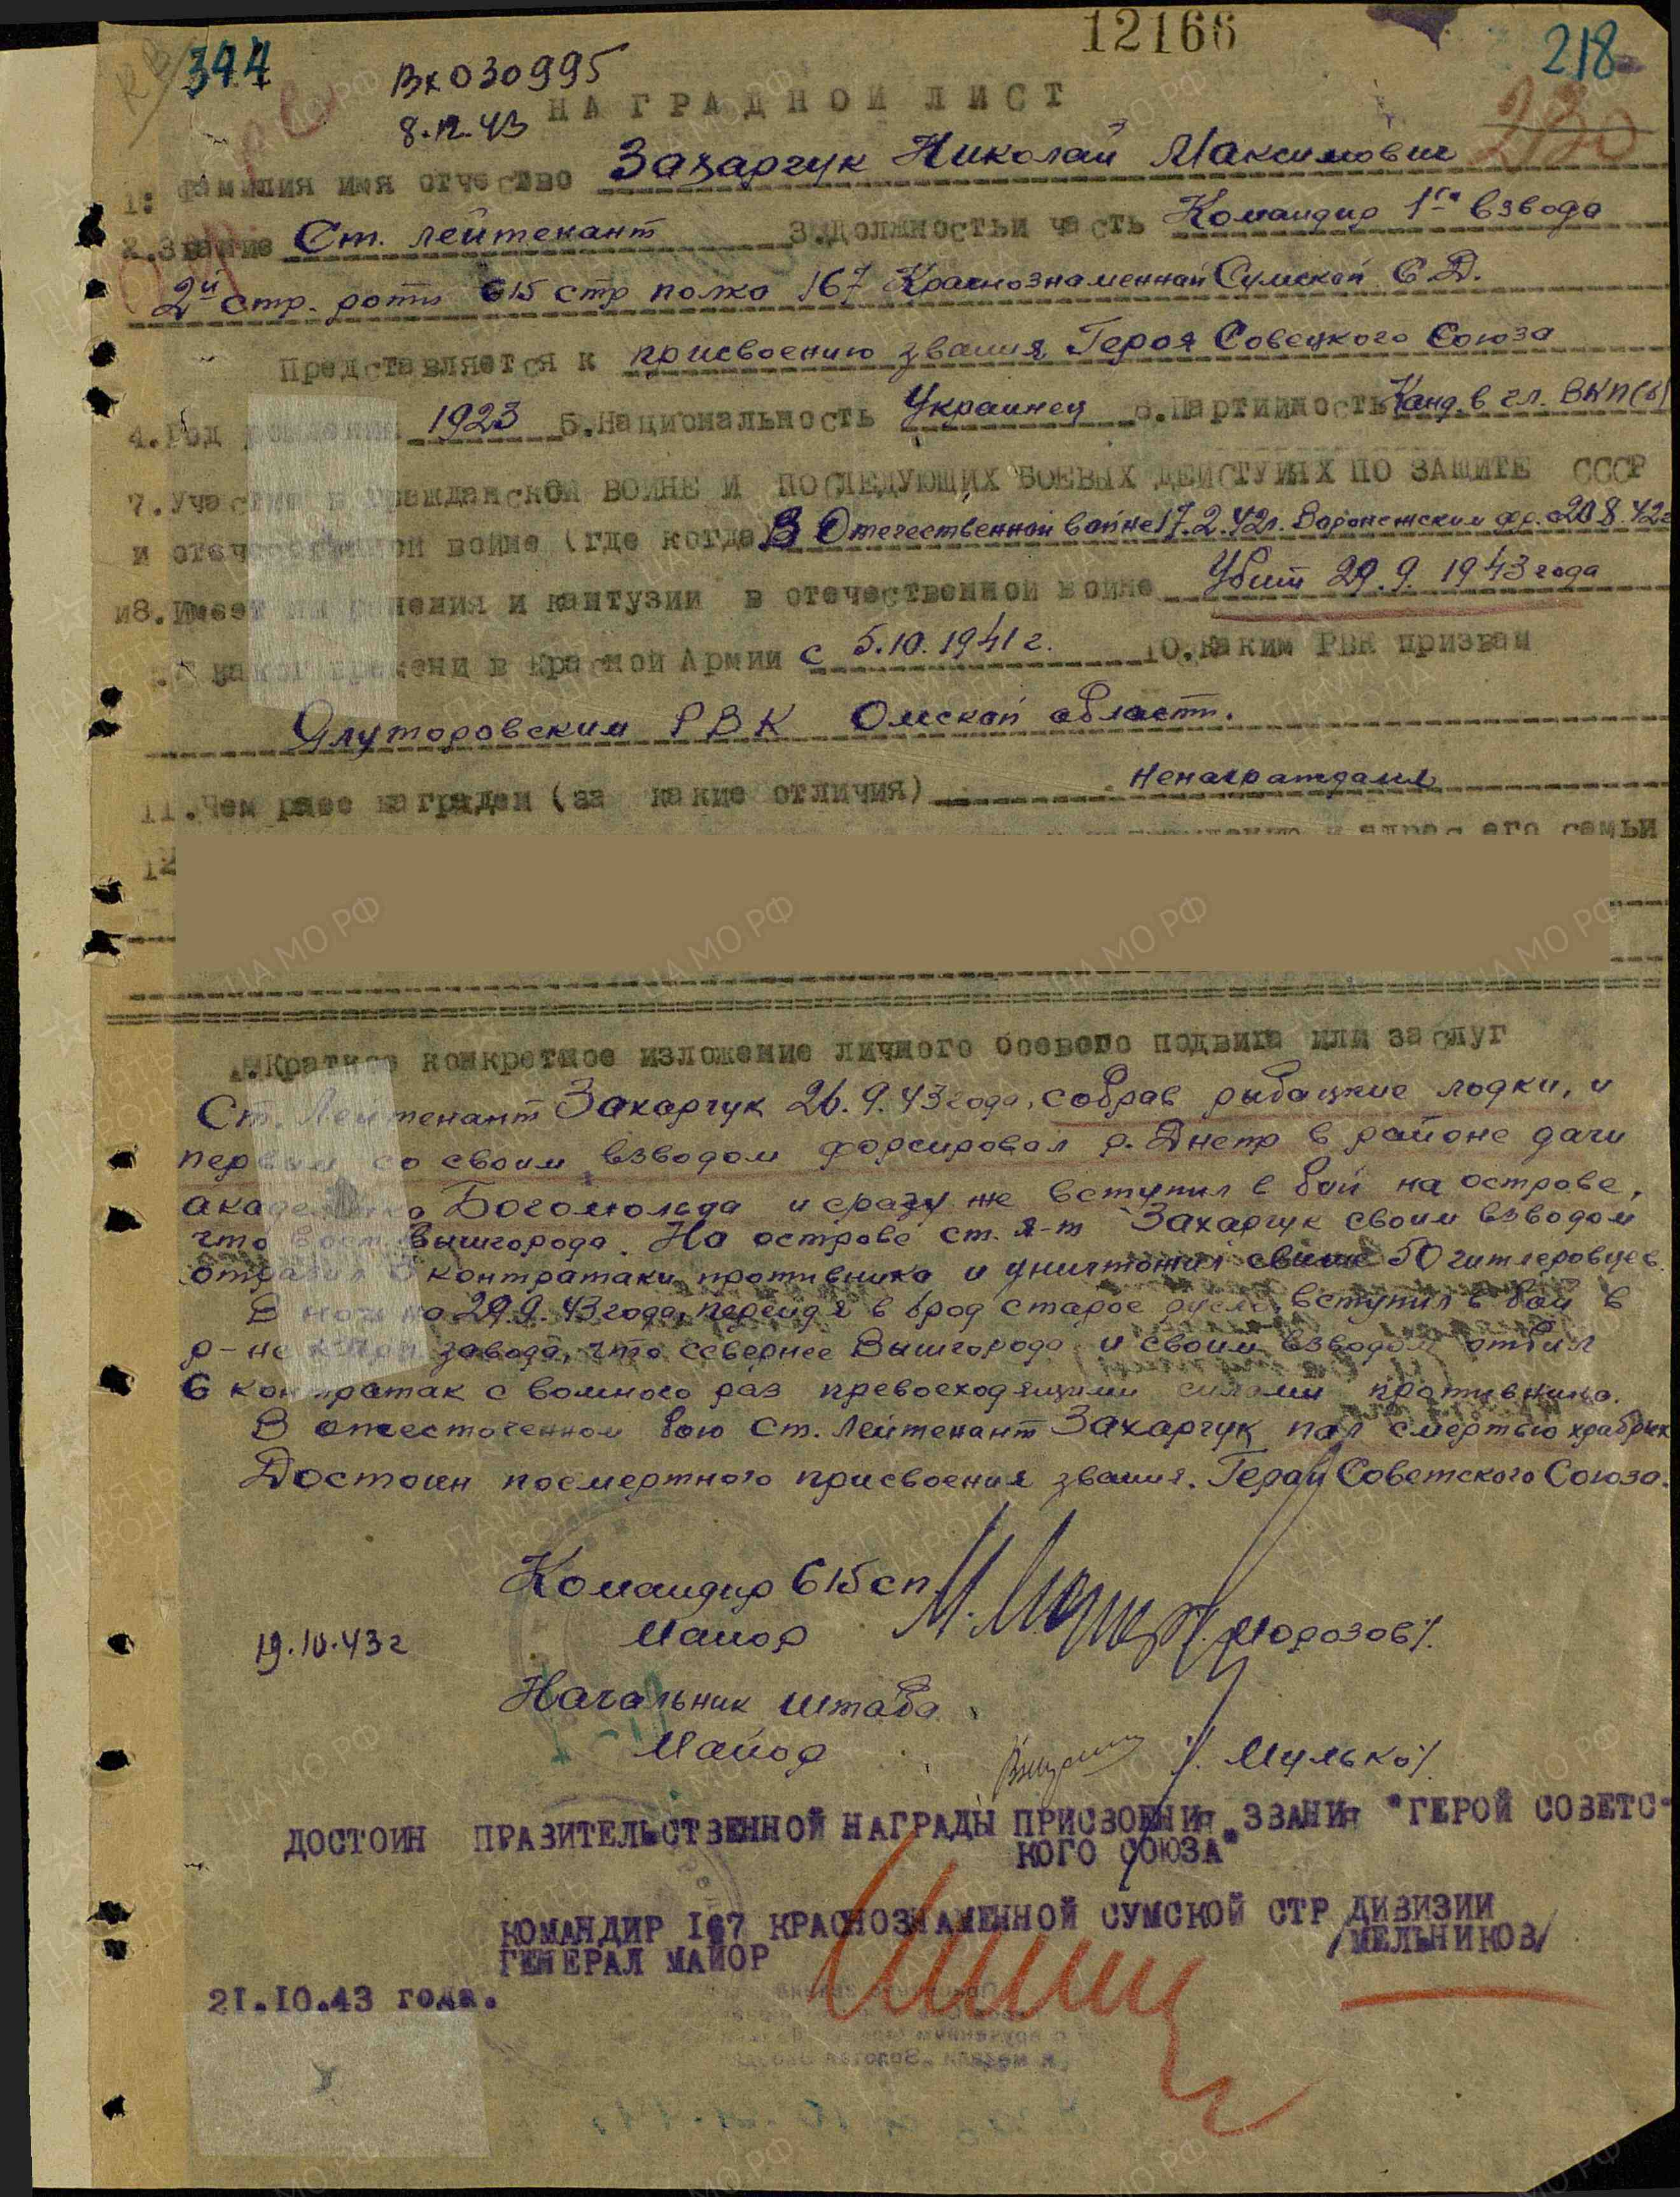 12166
344
218
230
Вх 030995
8.12.43
НАГРАДНОЙ ЛИСТ
1. Фамилия имя отчество Захарчук Николай Максимович
2. Звание Ст. лейтенант 3. Должность и часть Командир 1го взвода
2й стр. роты 615 стр полка 167 Краснознаменной Сумской С.Д.
Представляется к присвоению звания Героя Совецкого Союза
4. Год рождения 1923 5. Национальность Украинец 6. Партийность Канд. в чл. ВКП(б)
7. Участие в гражданской ВОЙНЕ И ПОСЛЕДУЮЩИХ БОЕВЫХ ДЕЙСТУИЯХ ПО ЗАЩИТЕ СССР
и отечественной войне (где когда) В Отечественной войне 17.2.42г. Воронежским фр. с 20.8.42г
8. Имеет ли ранения и кантузии в отечественной войне Убит 29.9.1943 года
С какого времени в Красной Армии с 5.10.1941 г. 10. Каким РВК призван
Ялуторовским РВК Омской области.
11. Чем ранее награжден (за какие отличия) ненаграждался
12 и адрес его семьи
1. Краткое конкретное изложение личного боевого подвига или заслуг
Ст. Лейтенант Захарчук 26.9.43 года, собрав рыбацкие лодки, и
первым со своим взводом форсировал р. Днепр в районе дачи
академика Богомольца и сразу же вступил в бой на острове,
что вост. Вышгорода. На острове ст. л-т Захарчук своим взводом
отразил контратаки противника и уничтожил свыше 50 гитлеровцев.
В ночь на 29.9.43 года, перейдя в брод старое русло, вступил в бой в
р-не кирп. завода, что севернее Вышгорода и своим взводом отбил
6 контратак с воммного раз превосходящими силами противника.
В ожесточенном бою Ст. Лейтенант Захарчук пал смертью храбрых
Достоин посмертного присвоения звания. Героя Советского Союза.
Командир 615 сп
Майор Морозов/.
19.10.43 г
Начальник штаба
Майор /. Мулько/.
ДОСТОИН ПРАВИТЕЛЬСТВЕННОЙ НАГРАДЫ ПРИСВОЕНИЯ ЗВАНИЯ "ГЕРОЙ СОВЕТС-
КОГО СОЮЗА"
КОМАНДИР 167 КРАСНОЗНАМЕННОЙ СУМСКОЙ СТР ДИВИЗИИ
ГЕНЕРАЛ МАЙОР /МЕЛЬНИКОВ/
21.10.43 года.